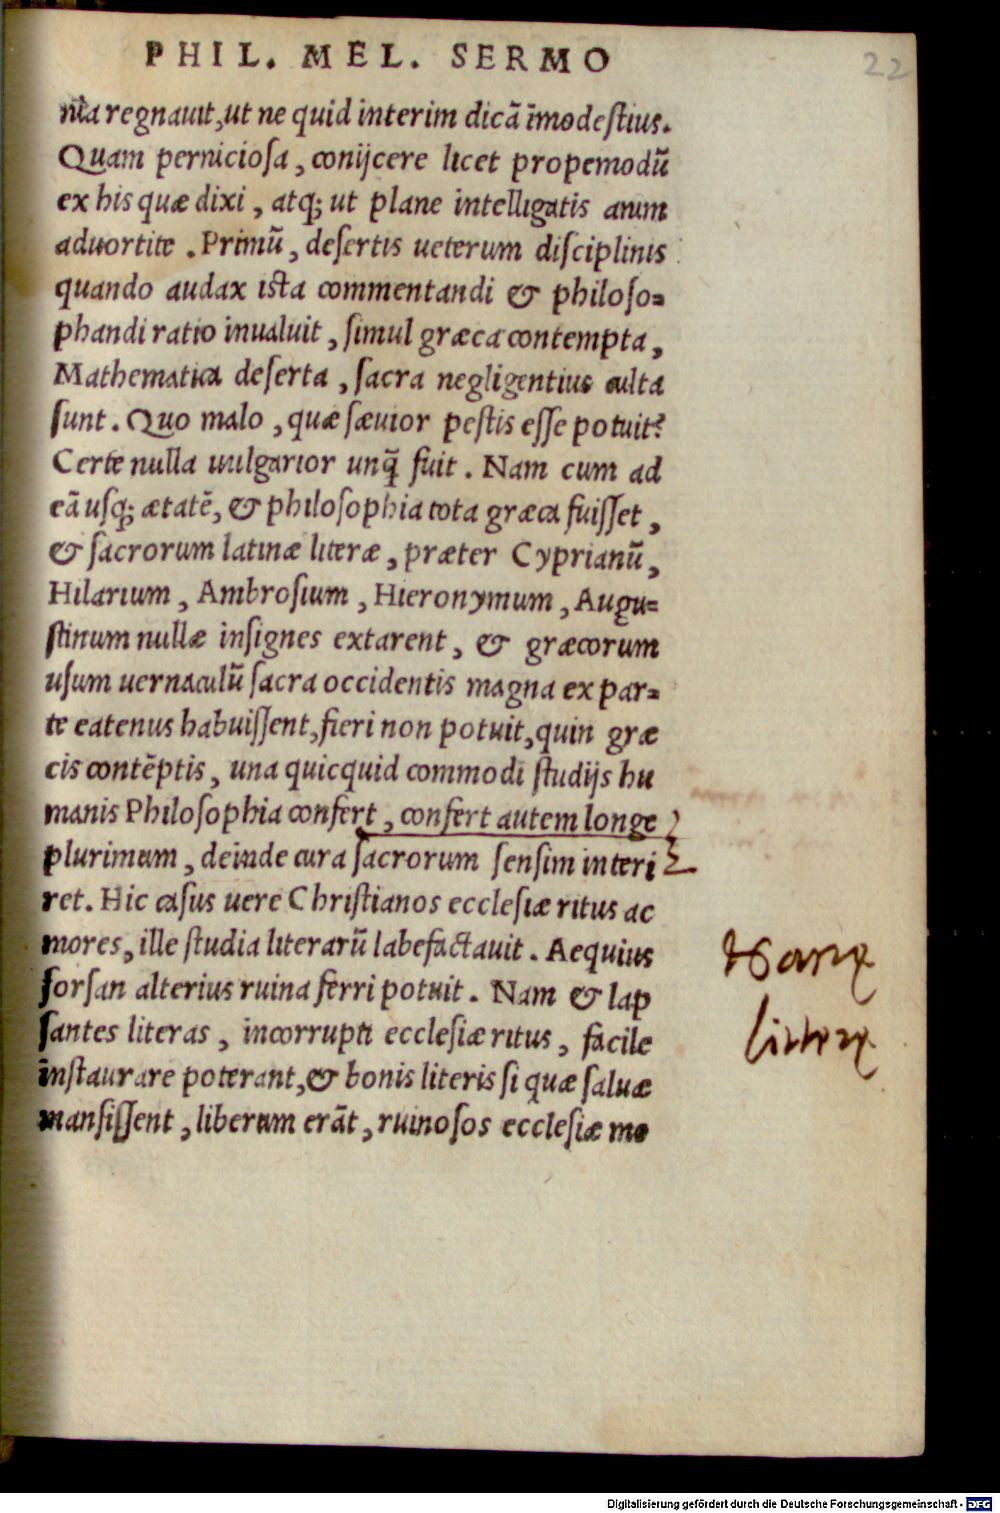 PHIL. MEL. SERMO
22
nia regnauit, ut ne quid interim dicā īmodestius.
Quam perniciosa, conijcere licet propemodū
ex his quæ dixi, atq; ut plane intelligatis anim
aduortite. Primū, desertis ueterum disciplinis
quando audax ista commentandi & philoso=
phandi ratio inualuit, simul græca contempta,
Mathematica deserta, sacra negligentius culta
sunt. Quo malo, quæ sæuior pestis esse potuit?
Certe nulla uulgarior unq̄ fuit. Nam cum ad
eā usq; ætatē, & philosophia tota græca fuisset,
& sacrorum latinæ literæ, præter Cyprianū,
Hilarium, Ambrosium, Hieronymum, Augu=
stinum nullæ insignes extarent, & græcorum
usum uernaculū sacra occidentis magna ex par=
te eatenus habuissent, fieri non potuit, quin græ
cis contēptis, una quicquid commodi studijs hu
manis Philosophia confert, confert autem longe
plurimum, deinde cura sacrorum sensim interi
ret. Hic casus uere Christianos ecclesiæ ritus ac
mores, ille studia literarū labefactauit. Aequius
forsan alterius ruina ferri potuit. Nam & lap
santes literas, incorrupti ecclesiæ ritus, facile
īnstaurare poterant, & bonis literis si quæ saluæ
mansissent, liberum erāt, ruinosos ecclesiæ mo
literæ
Digitalisierung gefördert durch die Deutsche Forschungsgemeinschaft - DFG